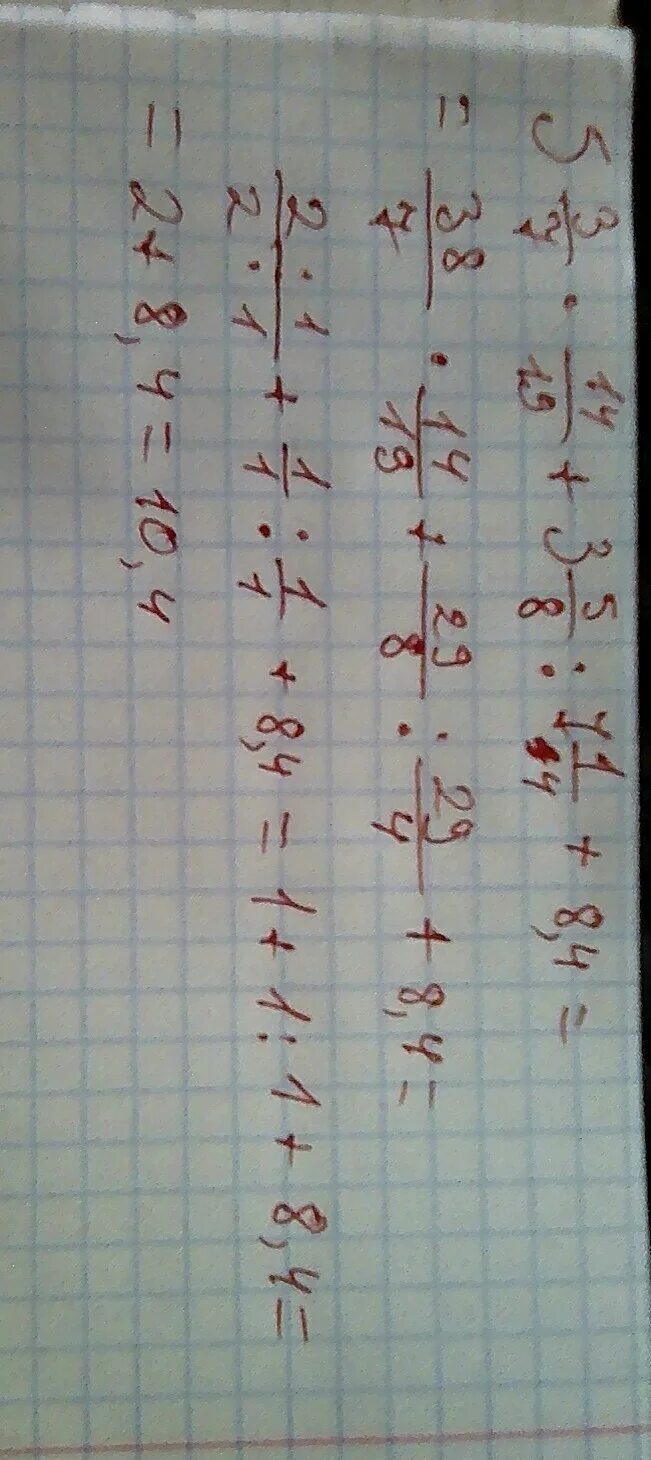 5 3/7 · 14/19 + 3 5/8 : 7 1/4 + 8,4 =
= 38/7 · 14/19 + 29/8 : 29/4 + 8,4 =
2·1/2·1 + 1/1 : 1/1 + 8,4 = 1 + 1 : 1 + 8,4 =
= 2 + 8,4 = 10,4